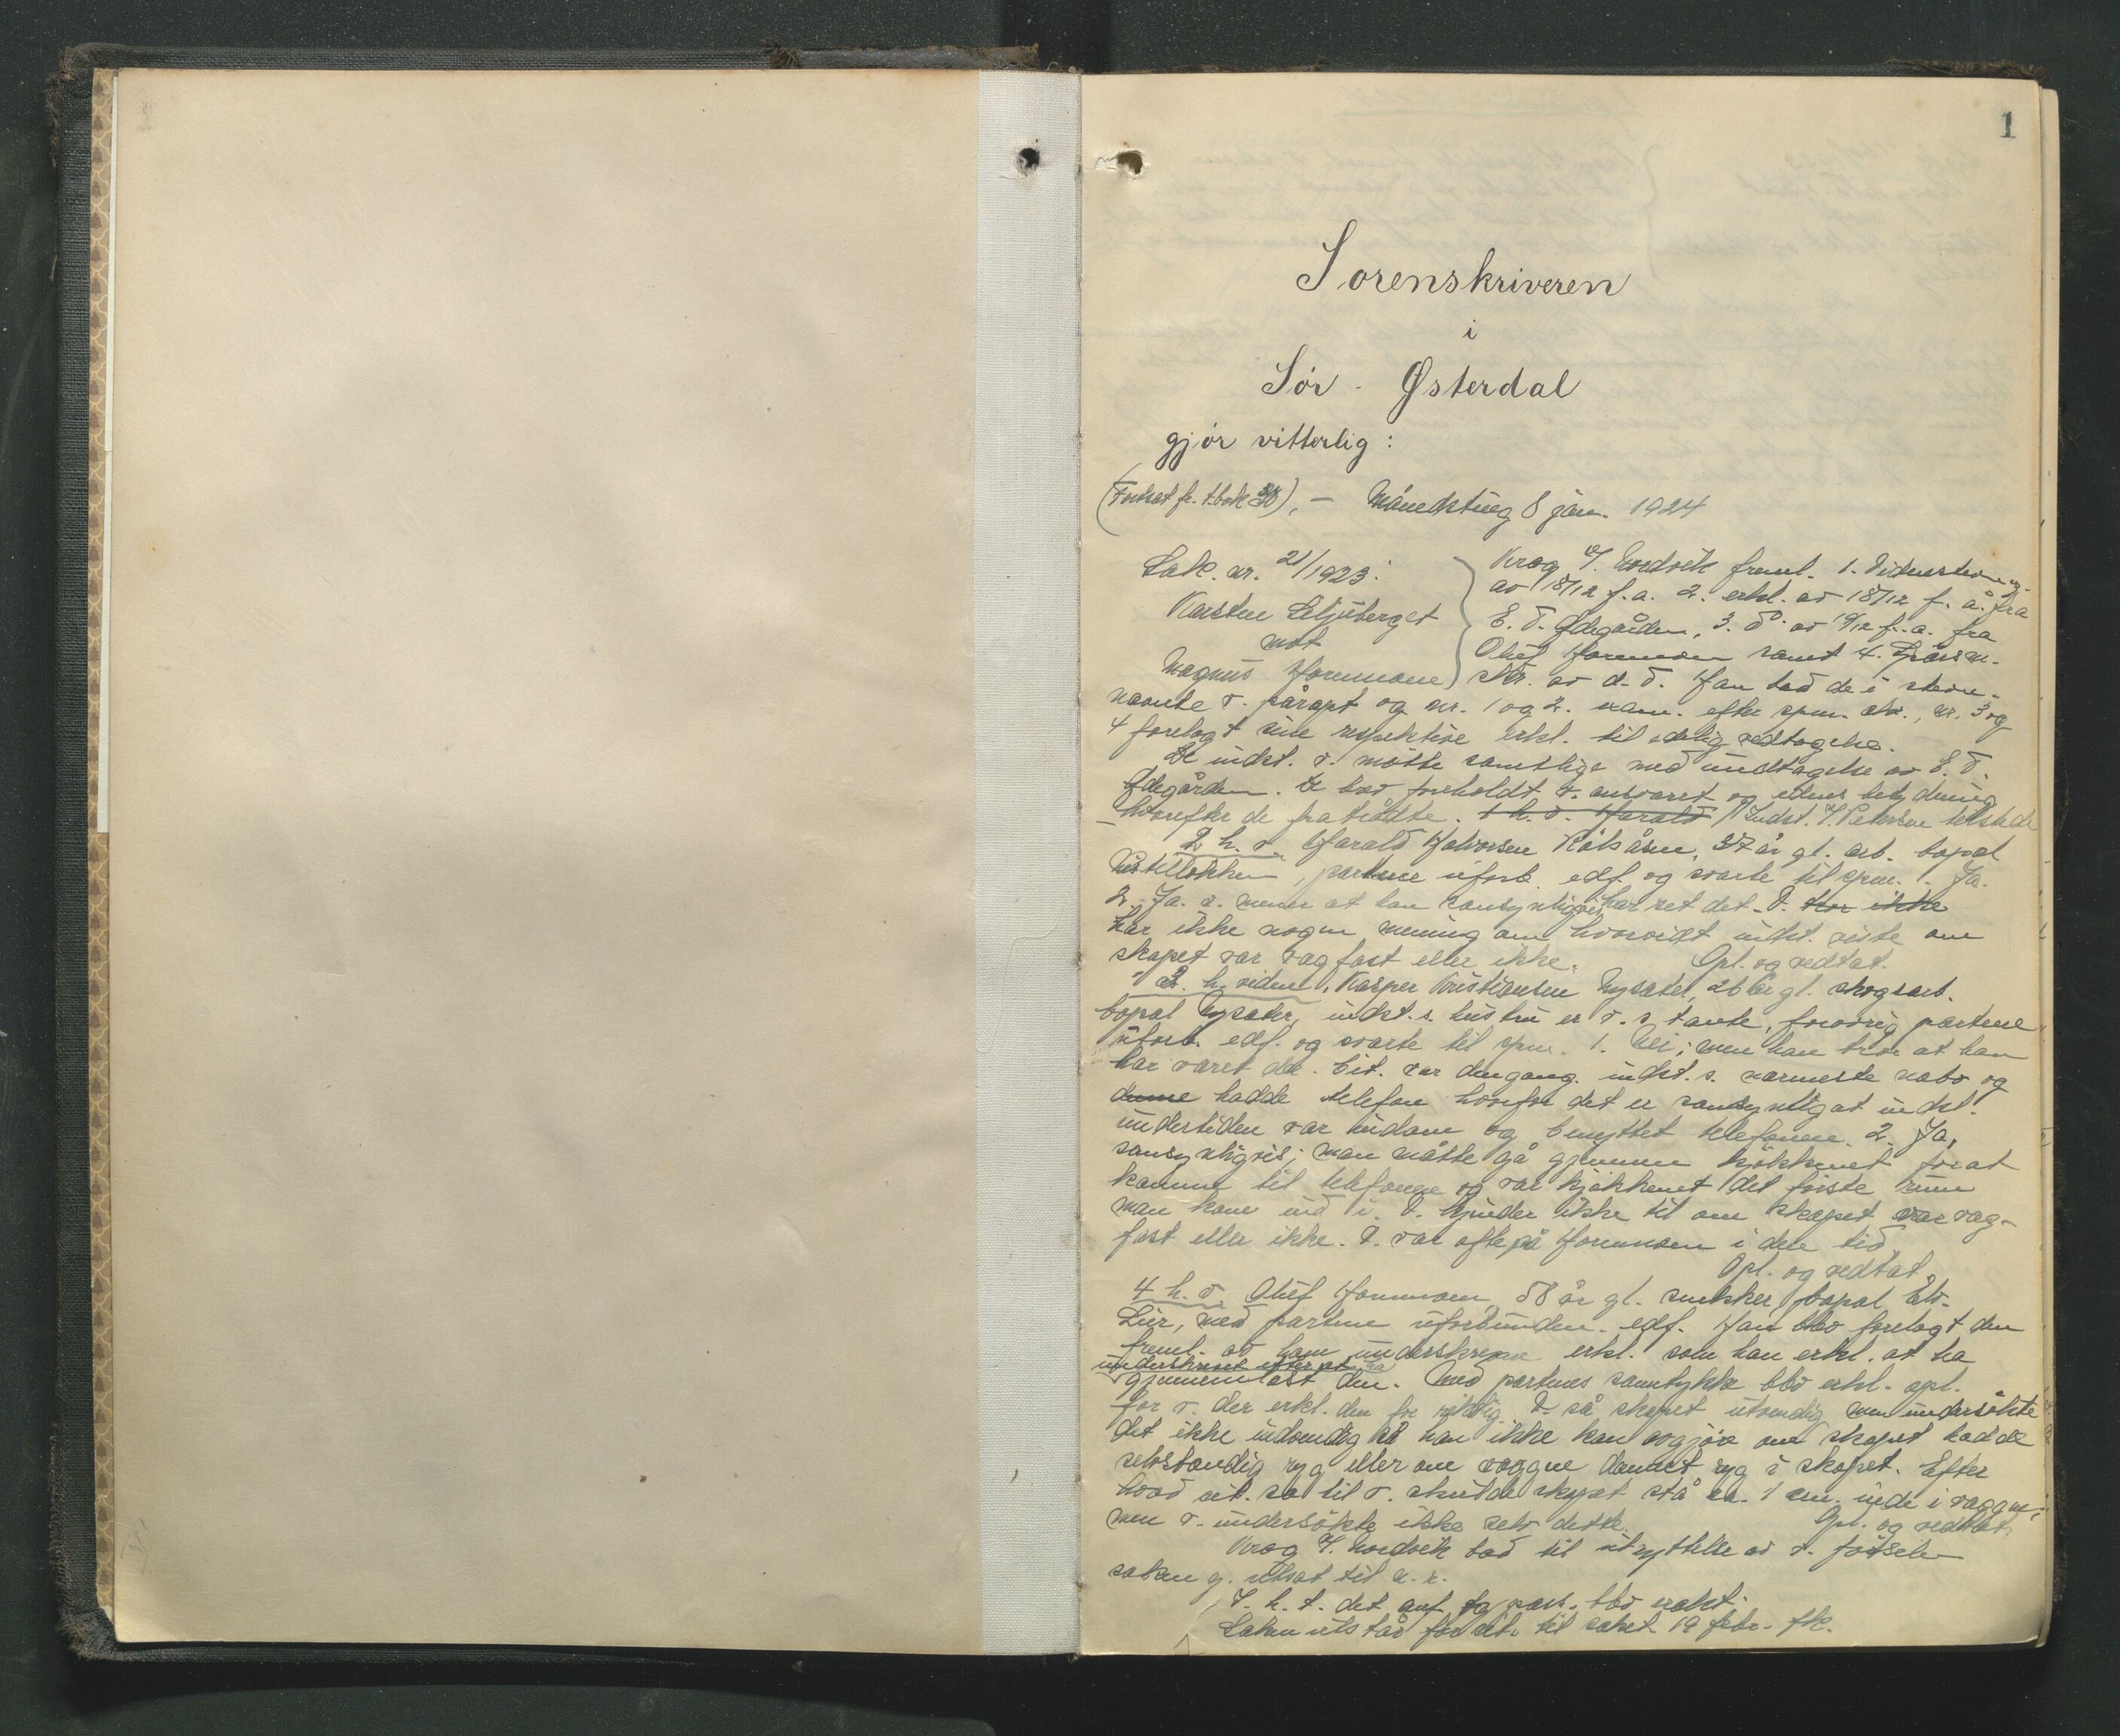 1
Sorenskriveren
i
Sør - Østerdal
gjør vitterlig :
(Fortsat fr. t.bok 38), — Månedsting 8 jan. 1924
Sak. nr. 21/1923:
Karsten Liljuberget
mot
Magnus Hornmoen
Krog v/ Nordvik freml. 1.
av 18/12 f. a. 2. erkl. av 18/12 f. å. fra
E. T. Ødegården, 3. do. av 19/12 f. a. fra
Oluf Hornmoen samt 4.
skr. av d. d. Han bad de i stevn.
nævnte v. påropt og nr. 1 og 2. exam. efter spm. skr., nr. 3 og
4 forelagt sine respektive erkl. til edelig vedtagelse.
De indst. v. møtte samtlige med undtagelse av E. T.
Ødegården. De blev foreholdt v. ansvaret og edens betydning
hvorefter de fratrådte. 1 h. v. Harald Indst. v/ Petersen tilstede
2 h. v. Harald Halvorsen Kålsåsen, 37 år gl. arb. bopæl
partene uforb. edf. og svarte til spm. 1. Ja.
2. Ja. v. mener at han sansynligvis har set det. V. tror ikke
har ikke nogen mening om hvorvidt indst. viste om
skapet var vægfast eller ikke. Opl. og vedtat.
3. h. vidne, Kasper Kristiansen Nysæter, 26 år gl. skogsarb.
bopæl Nysæter, indst. s. hustru er v. s tante, forøvrig partene
uforb. edf. og svarte til spm. 1. Nei; men han tror at han
har været der. Cit. var dengang indst. s. nærmeste nabo og
denne hadde telefon hvorfor det er sansynlig at indst.
undertiden var indom og benyttet telefonen. 2. Ja,
sansynligvis; man måtte gå gjennem kjøkkenet for at
komme til telefonen og var kjøkkenet det første rum
man kom ind i. V. kjender ikke til om skapet var væg-
fast eller ikke. V. var ofte på Hornmoen i den tid.
Opl. og vedtat.
4 h. v. Oluf Hornmoen, 58 år gl. snekker, bopæl
med partene uforbunden. edf. Han blev forelagt den
freml. av ham underskrevne erkl. som han erkl. at ha
underskrevet efter at ha
gjennemlæst den. Med partenes samtykke blev erkl. opl.
for v. der erkl. den for riktig. V. så skapet utvendig men undersøkte
det ikke indvendig så han ikke kan avgjøre om skapet hadde
selvstændig ryg eller om væggen dannet ryg i skapet. Efter
hvad cit. sa til v. skulde skapet stå ca. 1 cm. inde i væggen,
men v. undersøkte ikke selv dette. Opl. og vedtat.
Krog v/ Nordvik bad til utnyttelse av v. førselen
saken g. utsat til n. r.
T. h. t. det anf. tg pass. blev eraktet:
Saken utstår til 19 febr. fk.